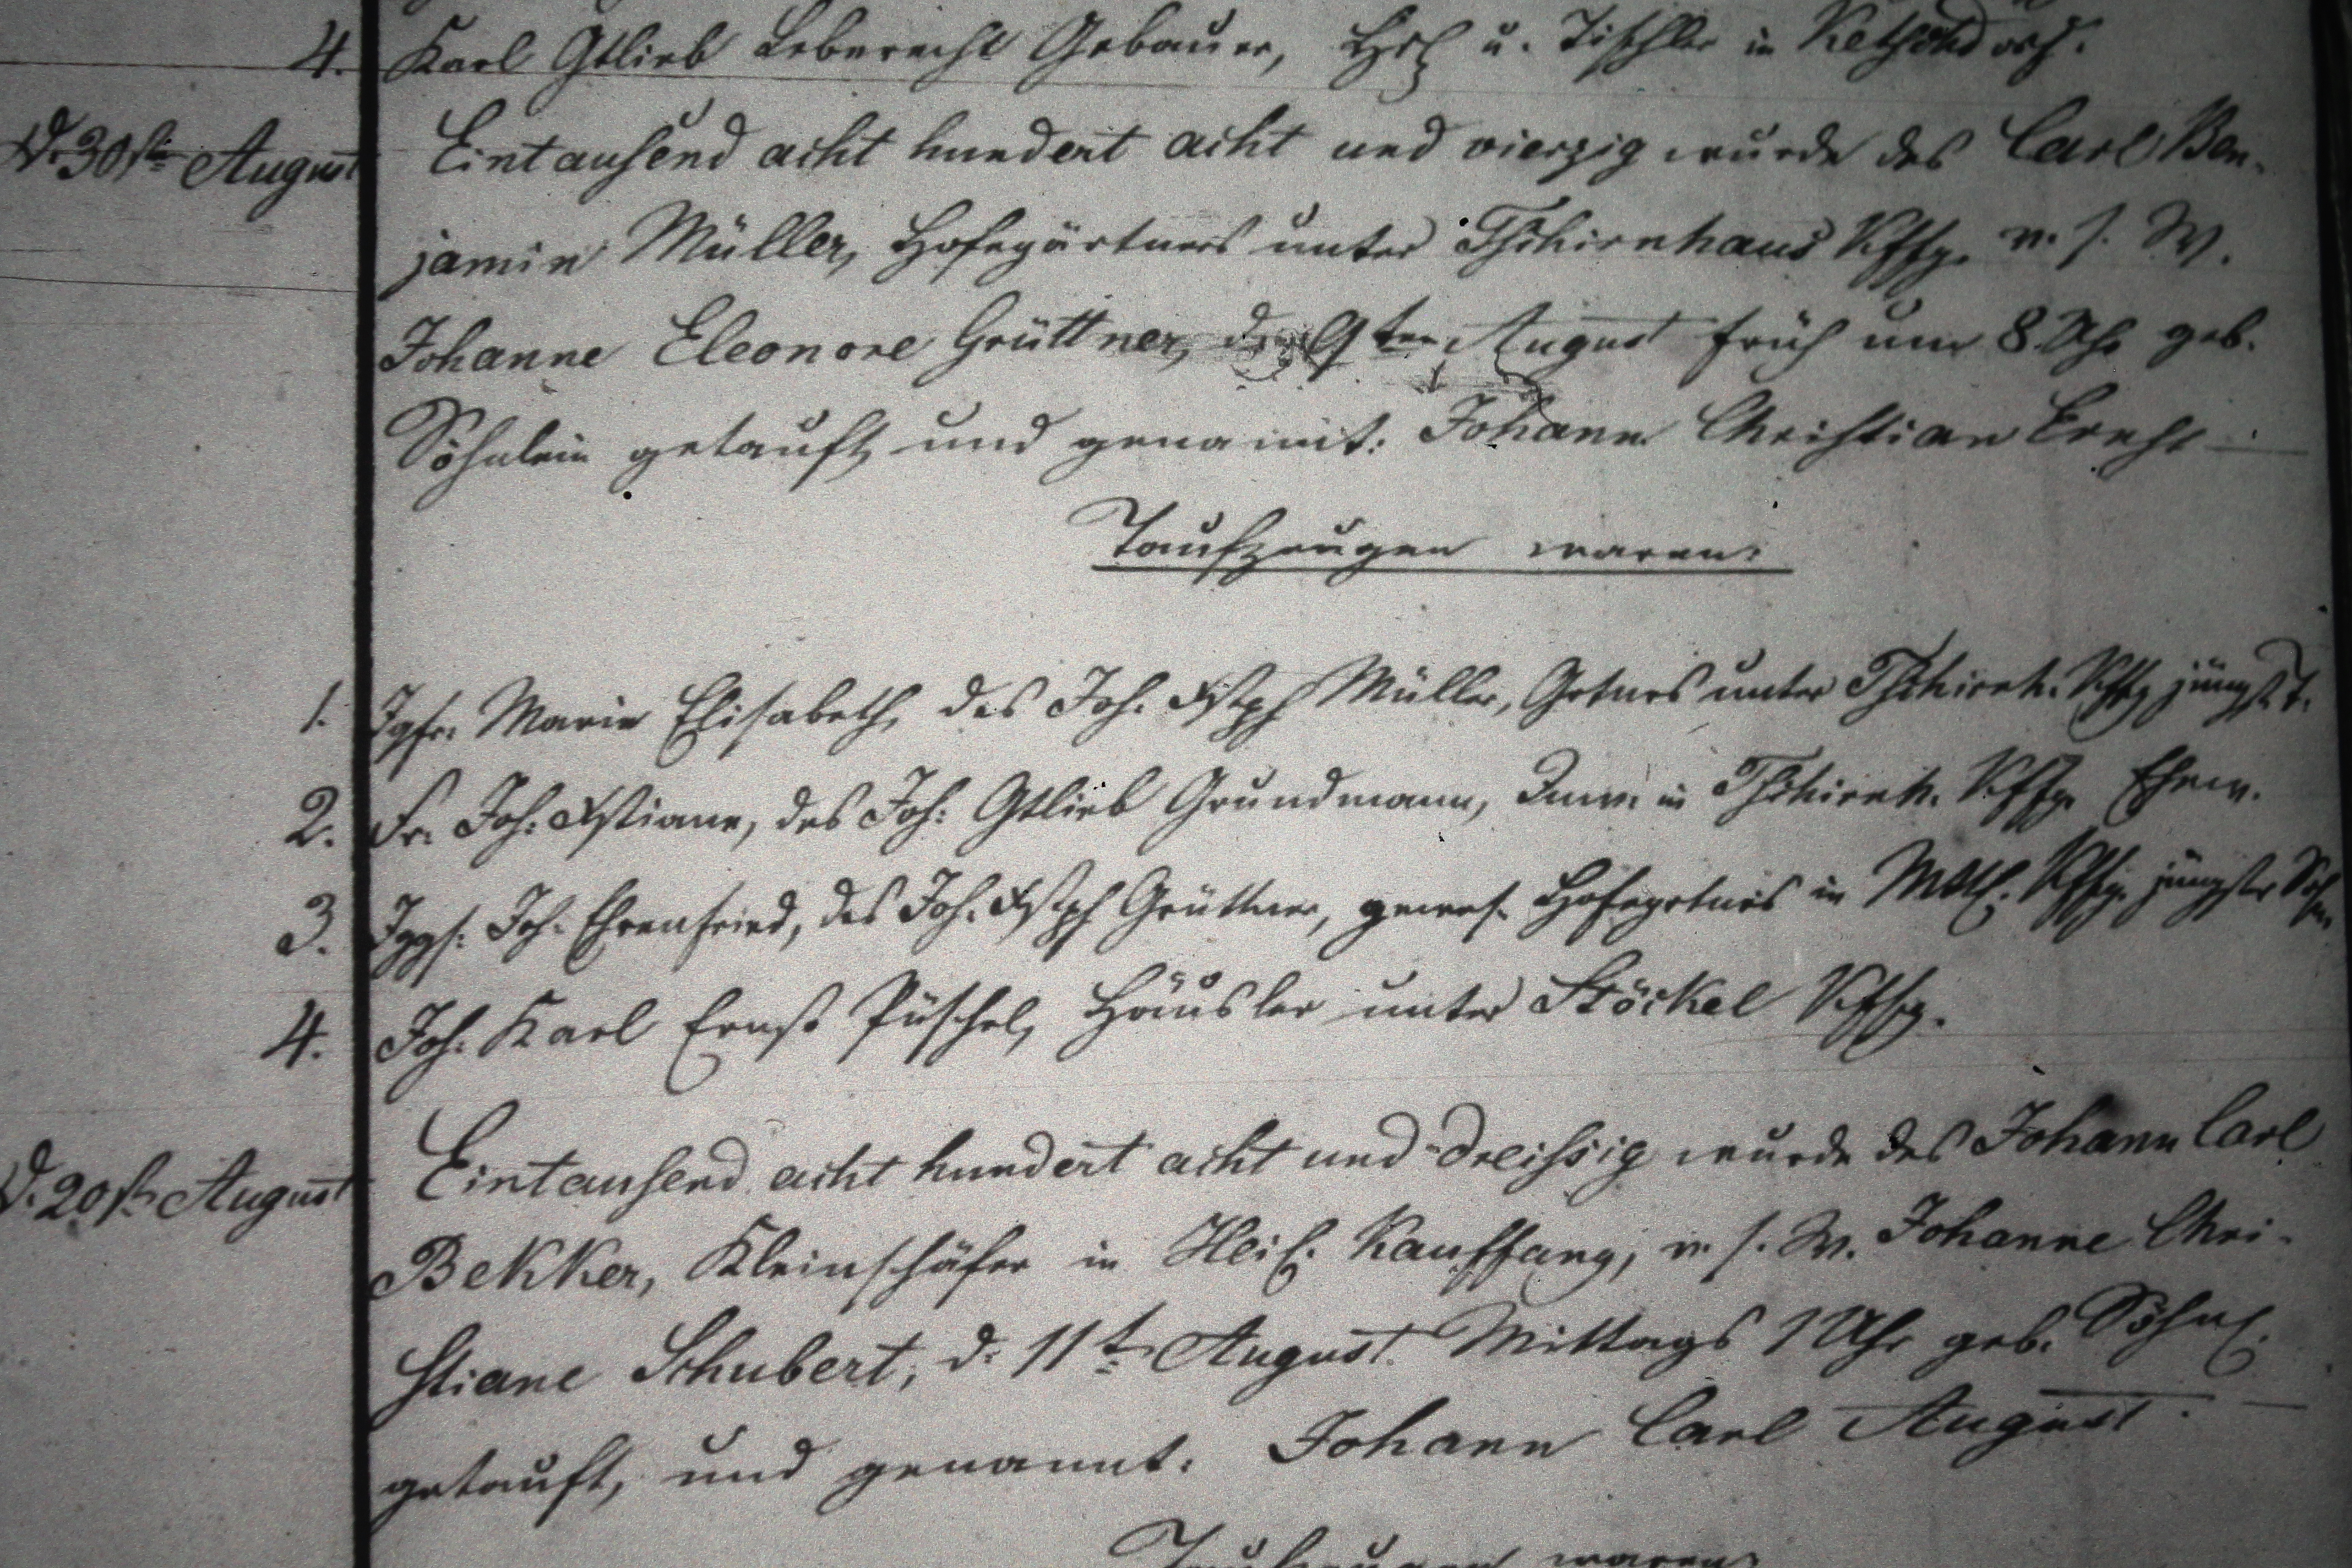 4. Karl Gtlieb Leberecht Gebauer, Hsl u. Tischler in Ketschdorf.
d. 30st. August Eintausend acht hundert acht und vierzig wurde des Carl Ben-
jamin Müller, Hofegärtners unter Tschirnhaus Kffg. v. s. W.
Johanne Eleonore Grüttner, den 9ten August früh um 8 Uhr geb.
Söhnlein getauft und genannt: Johann Christian
Taufzeugen waren:
1. Jgfr. Marie Elisabeth, des Joh. Xstph Müller, Grtners unter Tschirnh. Kffg jüngst. T.
2. Fr. Joh. Xstiane, des Joh: Gtlieb Grundmann, Inw. in Tschirnh. Kffg. Ehew.
3. Jggs. Joh. Ehrenfried, des Joh. Xstph Grüttner, gewes. Hofegrtners in Kffg. jüngster Sohn
4. Joh. Karl Ernst Püschel, Häusler unter Stöckel Kffg.
d. 20st. August Eintausend acht hundert acht und dreissig wurde des Johann Carl
Bekker, Kleinschäfer in Kauffung, v. s. W. Johanne Chri-
stiane Schubert, d. 11t. August Mittags 1 Uhr geb. Söhnl.
getauft, und genannt. Johann Carl August.
Taufzeugen waren: